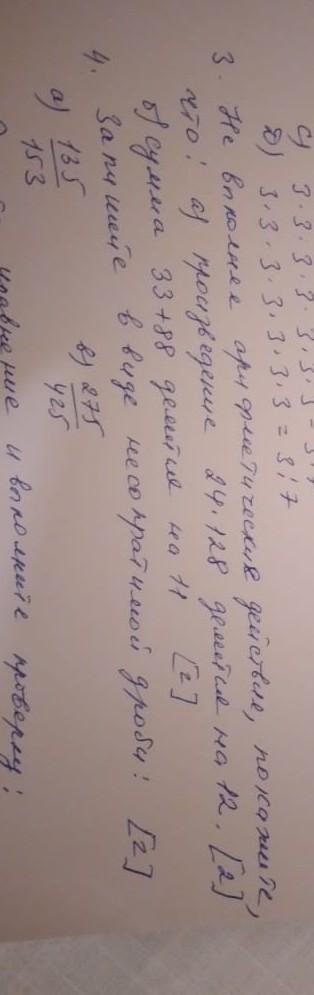 С) 3·3·3·3·3·3·3 = 3·7
D) 3·3·3·3·3·3·3 = 3:7
3. Не выполняя арифметические действие, покажите,
что: а) произведение 24·128 делится на 12. [2]
б) сумма 33+88 делится на 11 [2]
4. Запишите в виде несократимой дроби: [2]
а) 135/153 в) 275/425
уравнение и выполните проверку: